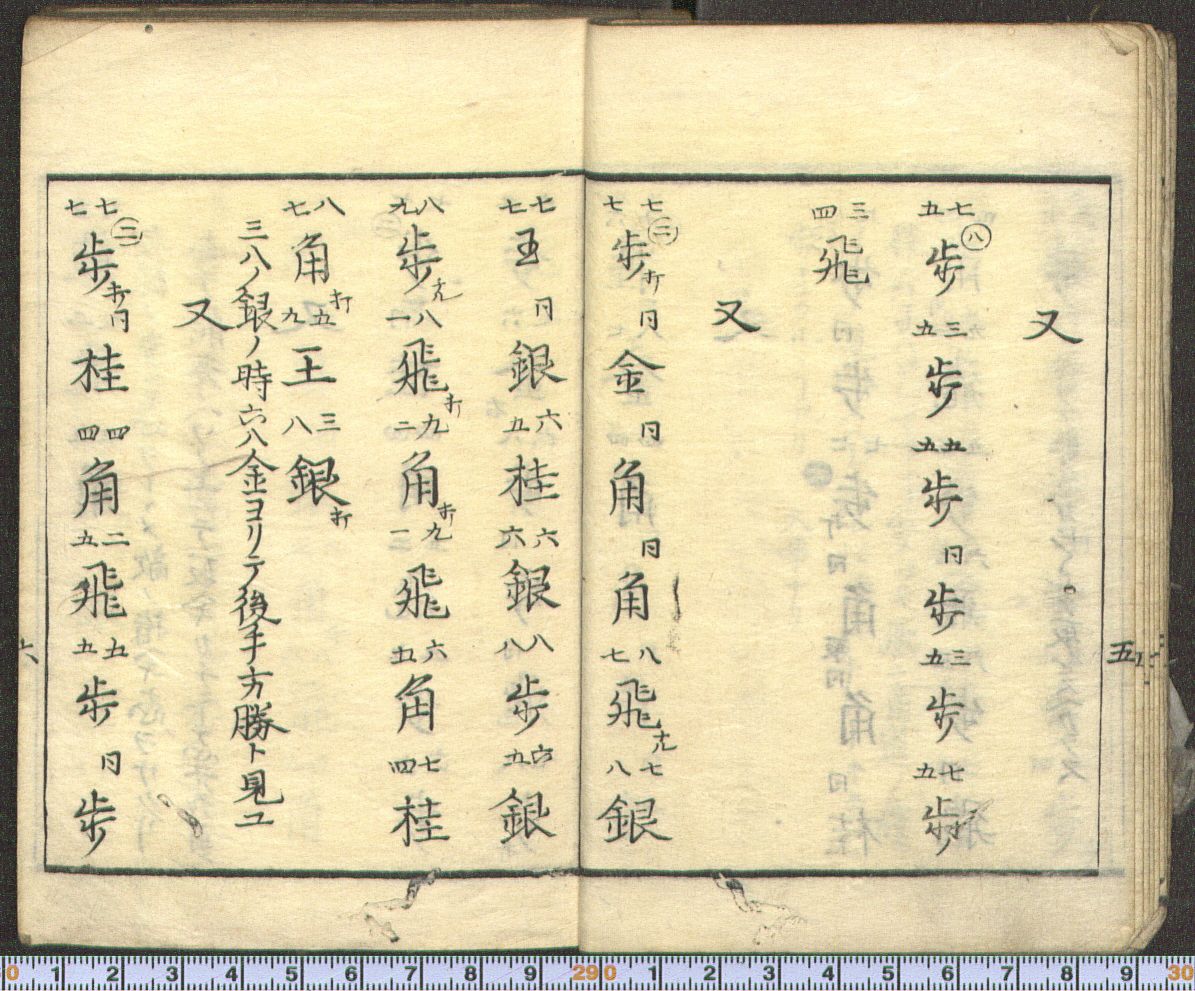 五
又
七五㊇歩 三五歩 五五歩 同歩 三五歩 七五歩打
三四飛
又
七七㊁歩打 同金 同角 同角 八七飛ナル 七八銀
七七玉 同銀 六五桂 六六銀 八八歩 六五銀
八九歩ナル 八一飛打 九二角打 九三飛 六五角 七四桂
八七角打 五九王 三八銀打
三八ノ銀ノ時六八金ヨリテ後手方勝ト見ユ
又
七七㊁歩打 同桂 四四角 二五飛 五五歩 同歩
六